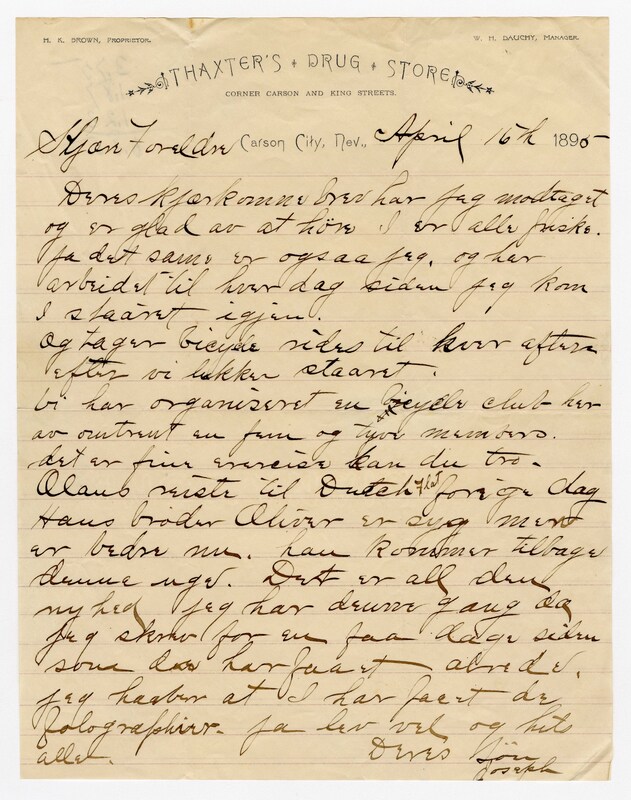 H. K. BROWN, PROPRIETOR.
W. H. DAUCHY, MANAGER.
THAXTER'S DRUG STORE
CORNER CARSON AND KING STREETS.
Kjære Foreldre Carson City, Nev., April 16th 1895
Deres kjærkomne brev har jeg modtaget
og er glad av at höre I er alle friske.
ja det same er ogsaa jeg, og har
arbeidet til hver dag siden jeg kom
I staaret igjen.
Og tager bicycle rides til hver aften
efter vi lukker staaret.
Vi har organiseret en bicycle club her
av omtrent en fem og tyve members.
det er fine exercise kan du tro.
Olaus reiste til Dutch Flat forige dag
Hans broder Oliver er syg men
er bedre nu. han kommer tilbage
denne uge. Det er all den
nyhed jeg har denne gang da
jeg skrev for en faa dage siden
som har faaet alrede.
jeg haaber at I har faaet de
fotographier. ja lev vel og hils
alle. Deres Sön
Joseph